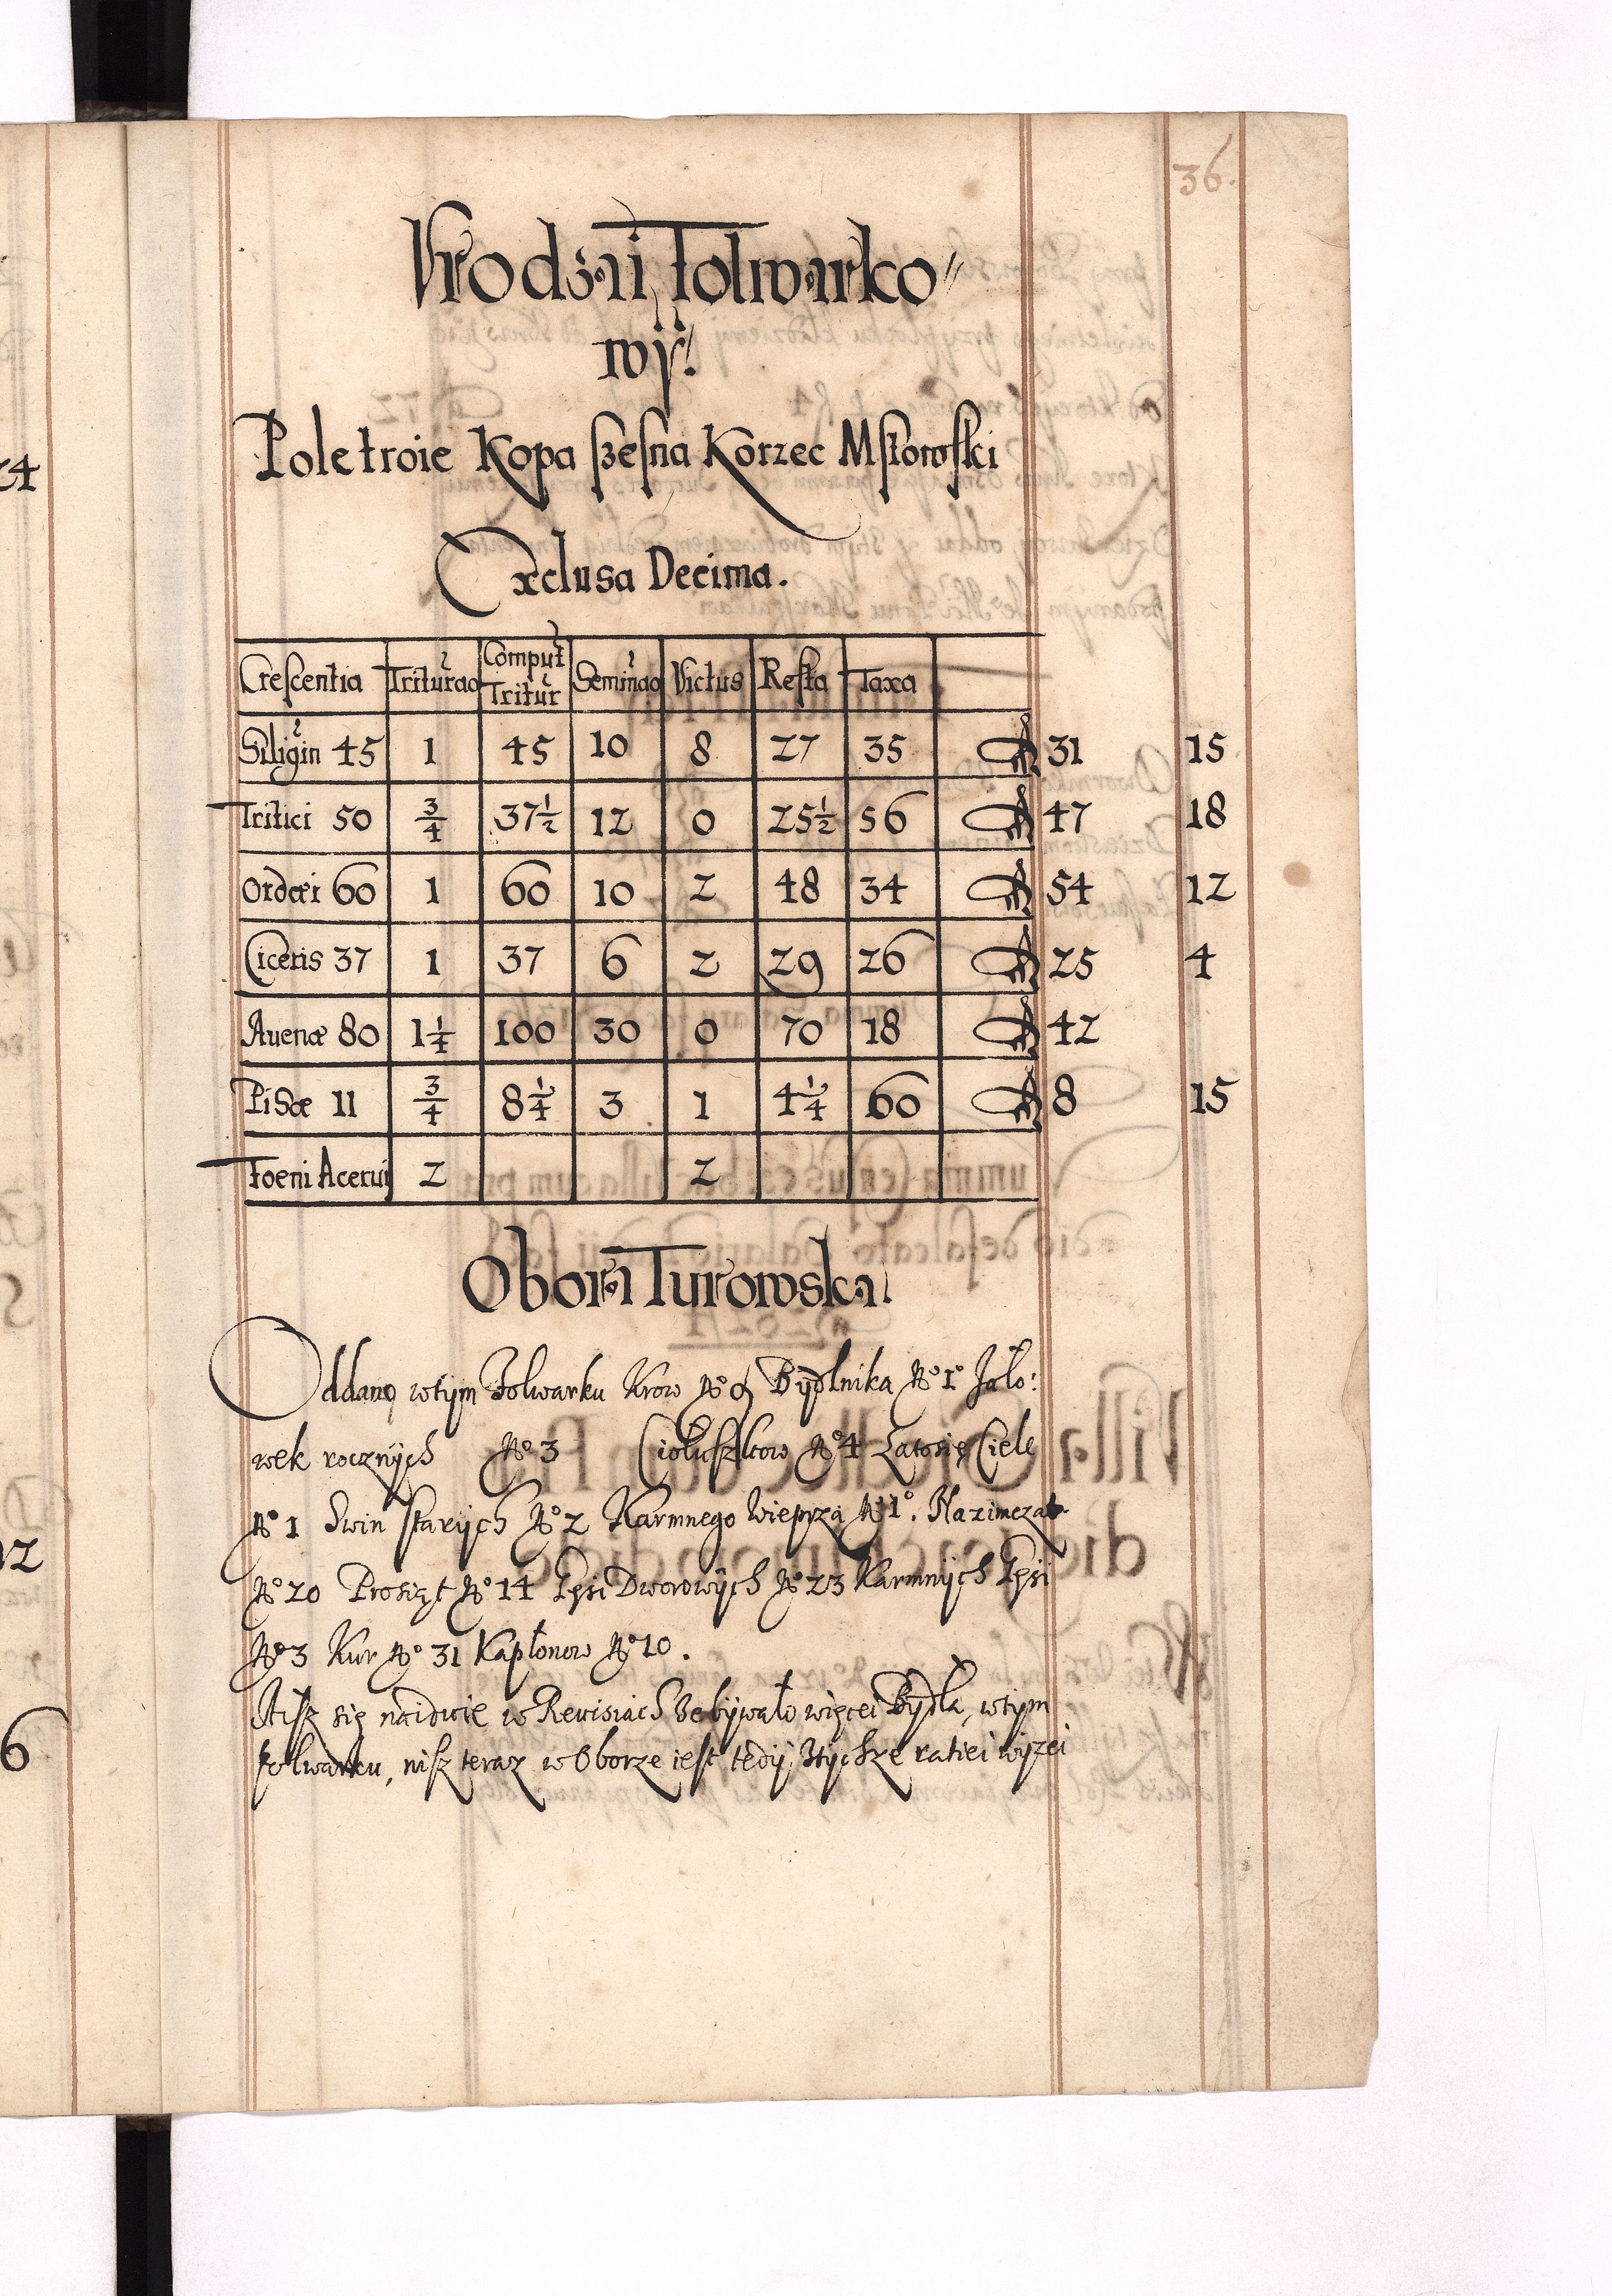 36.
Vrodzai Folwarko
wÿ.
Pole troie Kopa szesna Korzec Mstowski
Exclusa Decima.
Crescentia Triturao Comput Tritur Seminao Victus Resta Taxa
Siligin 45 1 45 10 8 27 35 31 15
Tritici 50 3/4 37 1/2 12 0 25 1/2 56 47 18
Ordei 60 1 60 10 2 48 34 54 12
Ciceris 37 1 37 6 2 29 26 25 4
Auenæ 80 1 1/4 100 30 0 70 18 42
Pisæ 11 3/4 8 1/4 3 1 4 1/4 60 8 15
Foeni Acerui 2 2
Obora Turowska
Oddano wtym Folwarku Krow No 9 Bydlnika No 1o Jało:
wek rocznÿch No 3 Ciołuszkow No 4 Latosię Ciele
No 1 Swin starÿch No 2 Karmnego Wieprza No 1o. Nazimczat
No 20 Prosiąt No 14 Gęsi Dworowÿch No 23 Karmnÿch Gęsi
No 3 Kur No 31 Kapłonow No 10.
Aisz się naiduie w Reuisiach ze bÿwało więcei Bÿdła, wtym
folwarku, nisz teraz w Oborze iest tedÿ ztÿchze ratiei wÿzei
24
12
6